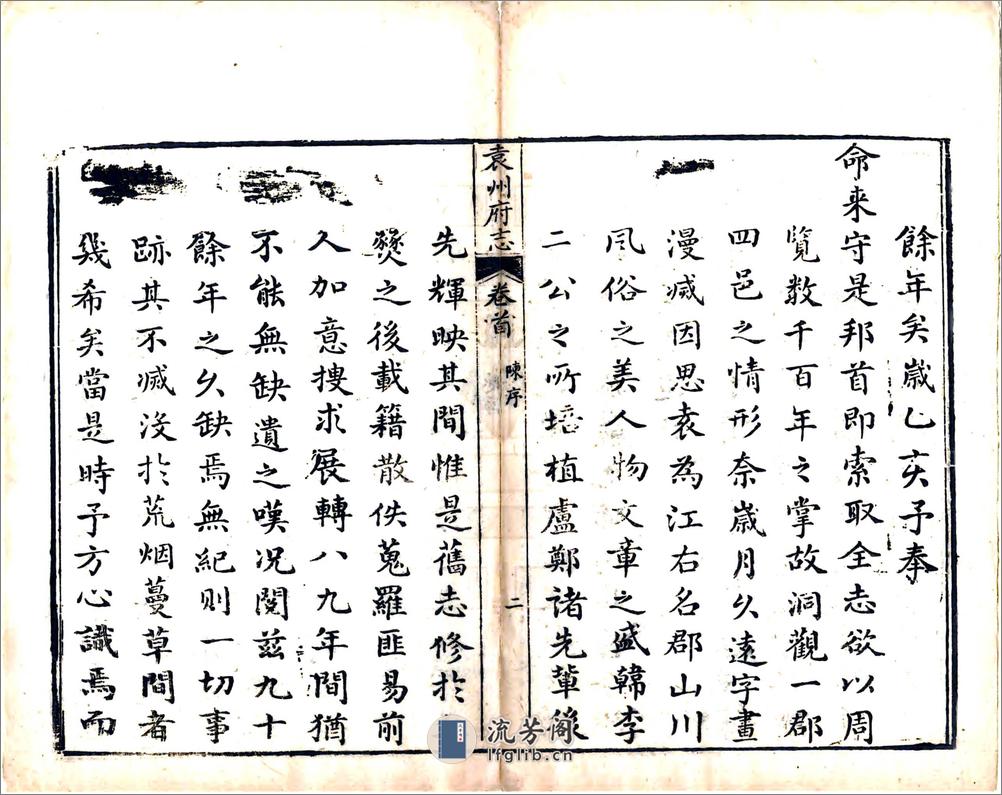 餘年矣歲乙亥予奉
命来守是邦首即索取全志欲以周
覽数千百年之掌故洞觀一郡
四邑之情形奈歲月久遠字畫
漫减因思袁為江右名郡山川
風俗之美人物文章之盛韓李
二公之所培植盧鄭諸先軰後
袁州府志 卷首 陳序 二
先輝映其間惟是舊志修於
燹之後載籍散佚蒐羅匪易前
人加意搜求展轉八九年間猶
不能無缺遺之嘆况閱兹九十
餘年之久缺焉無紀則一切事
跡其不减没於荒烟蔓草間者
幾希矣當是時予方心識焉而
流芳阁
lfglib.cn